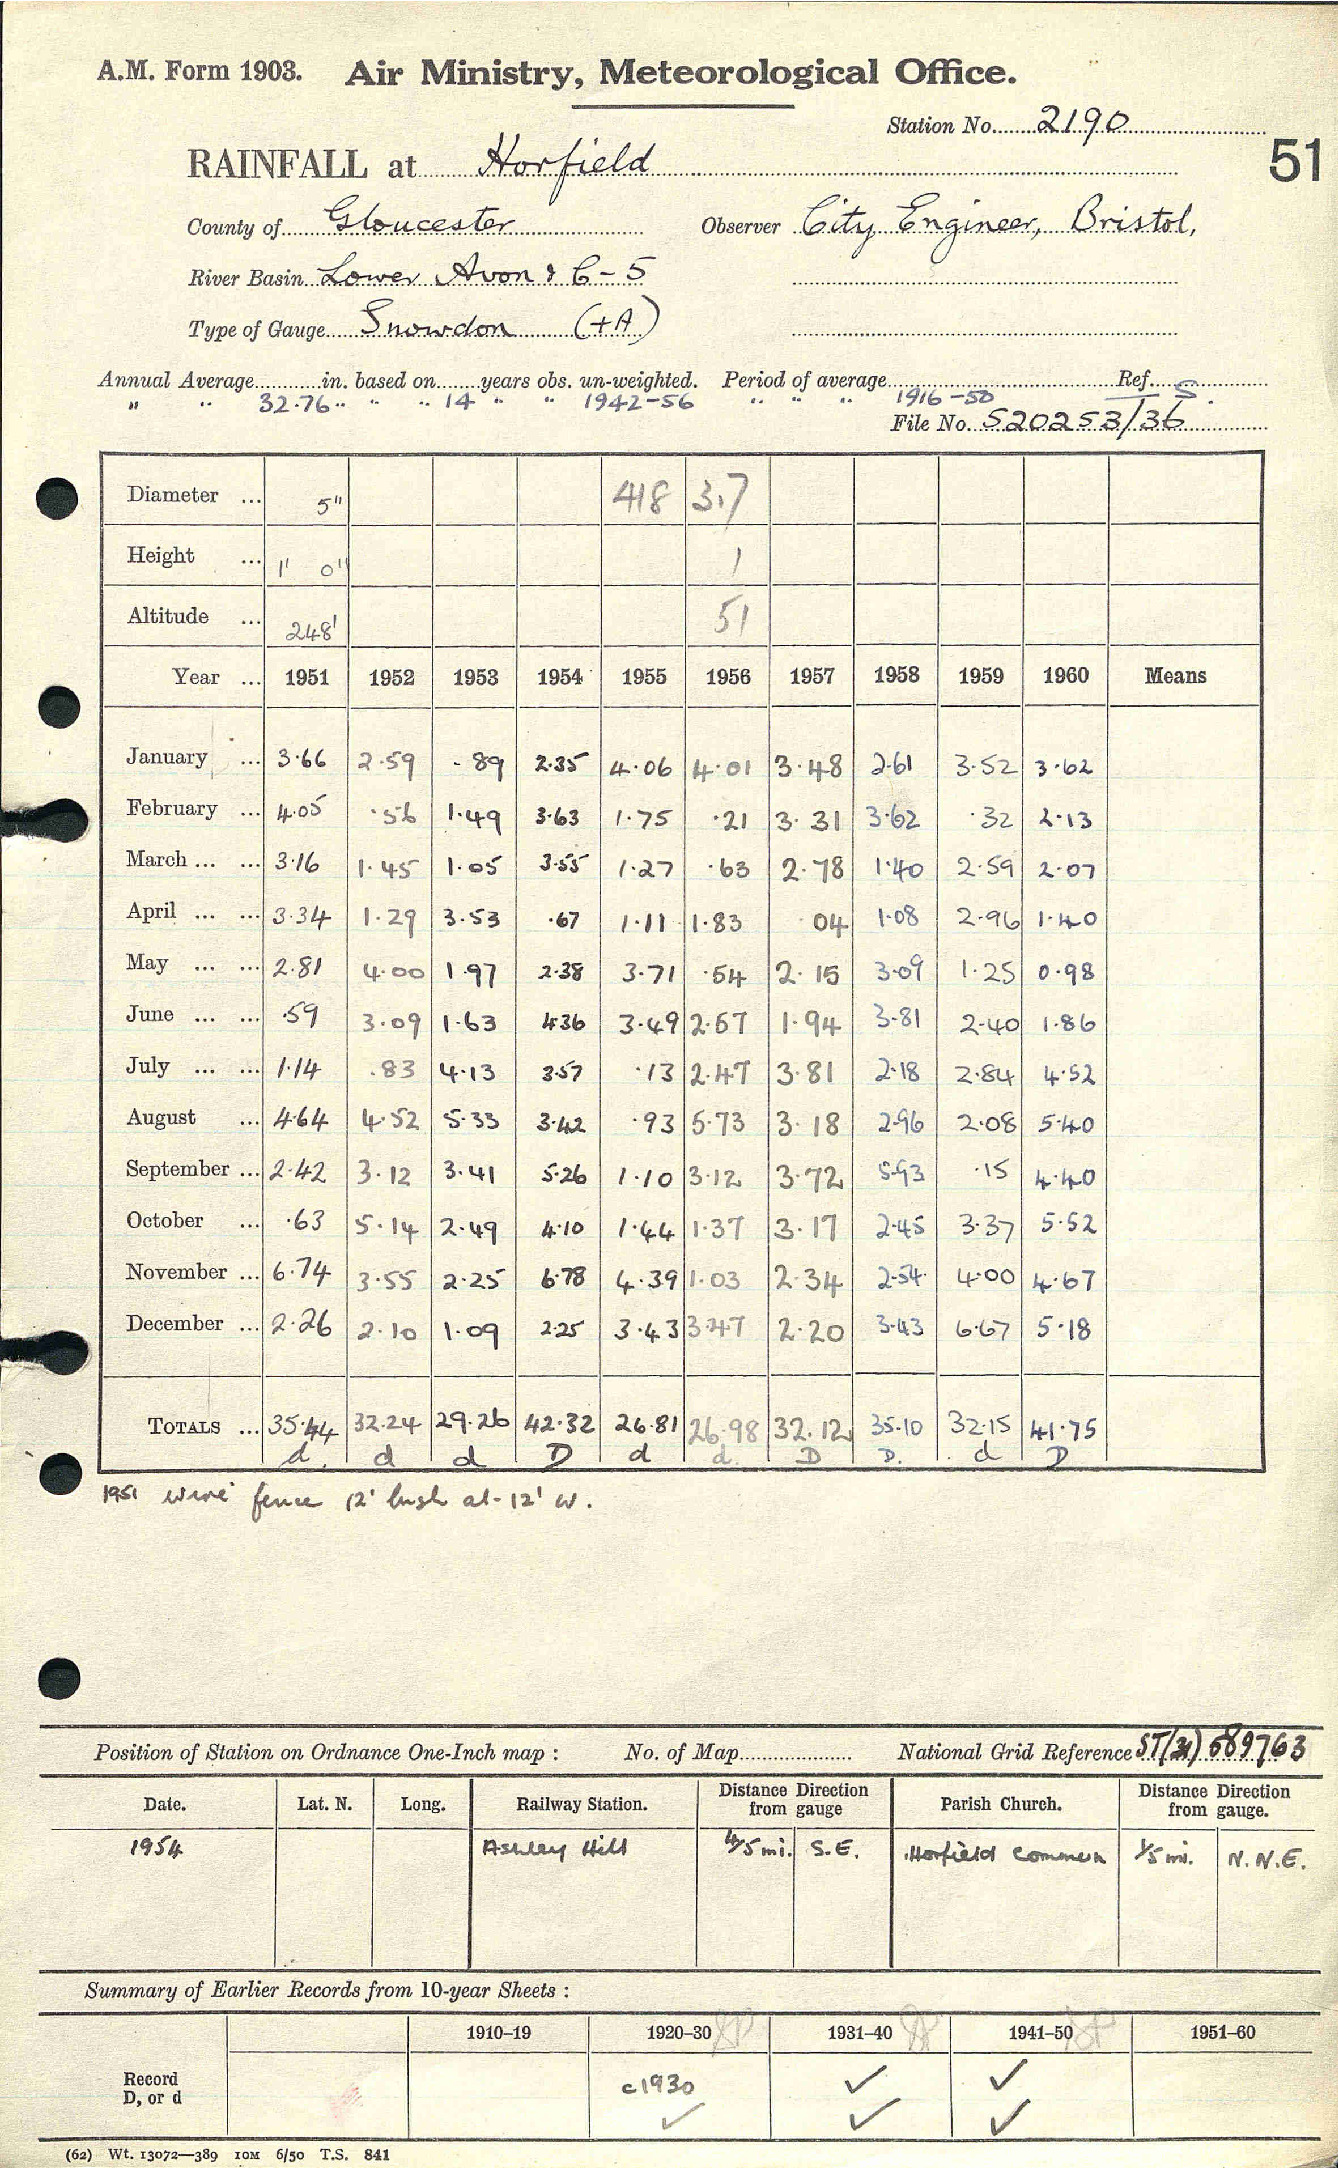 A.M. Form 1903. Air Ministry, Meteorological Office.
Station No. 2190
51
RAINFALL at Horfield
County of Gloucester Observer City Engineer, Bristol,
River Basin Lower Avon & C-5
Type of Gauge Snowdon (+A)
Annual Average in. based on years obs. un-weighted. Period of average Ref. S.
" " 32.76 " " " 14 " " 1942-56 " " " 1916-50
File No. S20253/36
Diameter ... 5" 418 3.7
Height ... 1' 0" 1
Altitude ... 248' 51
Year ... 1951 1952 1953 1954 1955 1956 1957 1958 1959 1960 Means
January ... 3.66 2.59 .89 2.35 4.06 4.01 3.48 2.61 3.52 3.62
February ... 4.05 .56 1.49 3.63 1.75 .21 3.31 3.62 .32 2.13
March ... ... 3.16 1.45 1.05 3.55 1.27 .63 2.78 1.40 2.59 2.07
April ... ... 3.34 1.29 3.53 .67 1.11 1.83 .04 1.08 2.96 1.40
May ... ... 2.81 4.00 1.97 2.38 3.71 .54 2.15 3.09 1.25 0.98
June ... ... .59 3.09 1.63 4.36 3.49 2.57 1.94 3.81 2.40 1.86
July ... ... 1.14 .83 4.13 3.57 .13 2.47 3.81 2.18 2.84 4.52
August ... 4.64 4.52 5.33 3.42 .93 5.73 3.18 2.96 2.08 5.40
September ... 2.42 3.12 3.41 5.26 1.10 3.12 3.72 5.93 .15 4.40
October ... .63 5.14 2.49 4.10 1.44 1.37 3.17 2.45 3.37 5.52
November ... 6.74 3.55 2.25 6.78 4.39 1.03 2.34 2.54 4.00 4.67
December ... 2.26 2.10 1.09 2.25 3.43 3.47 2.20 3.43 6.67 5.18
TOTALS ... 35.44 32.24 29.26 42.32 26.81 26.98 32.12 35.10 32.15 41.75
d. d d D d d. D D. d D
1951 wire fence 12' bush at 12' W.
Position of Station on Ordnance One-Inch map : No. of Map National Grid Reference ST(31) 589763
Date. Lat. N. Long. Railway Station. Distance Direction from gauge Parish Church. Distance Direction from gauge.
1954 Ashley Hill 4/5 mi. S.E. Horfield Common 1/5 mi. N.N.E.
Summary of Earlier Records from 10-year Sheets :
1910–19 1920–30 1931–40 1941–50 1951–60
Record
D, or d
c1930 ✓ ✓
✓ ✓ ✓
(62) Wt. 13072—389 10M 6/50 T.S. 841